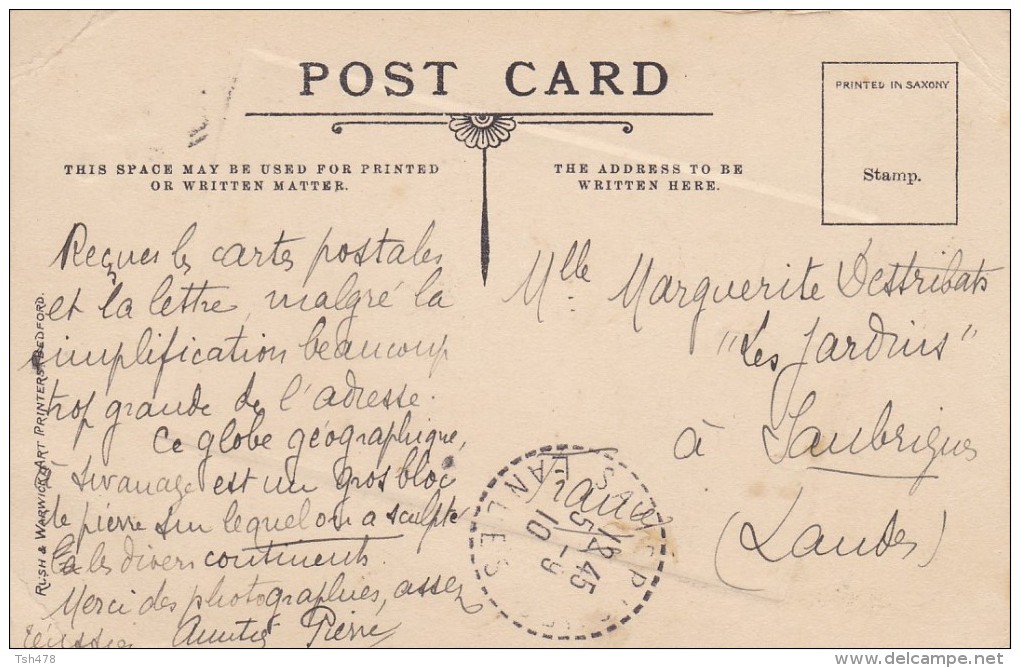 POST CARD
PRINTED IN SAXONY
Stamp.
THIS SPACE MAY BE USED FOR PRINTED
OR WRITTEN MATTER.
THE ADDRESS TO BE
WRITTEN HERE.
Reçues les cartes postales
et la lettre, malgré la
simplification beaucoup
trop grande de l'adresse.
Ce globe géographique,
à Swanage est un gros bloc
de pierre sur lequel on a sculpté
les divers continents.
Merci des photographies, assez
réussies Pierre
Mlle Marguerite Destribats
"Les Jardins"
à Saubrigues
(Landes)
France
12 45
10 - 9
RUSH & WARWICK, ART PRINTERS, BEDFORD.
Tsh478
delcampe.net